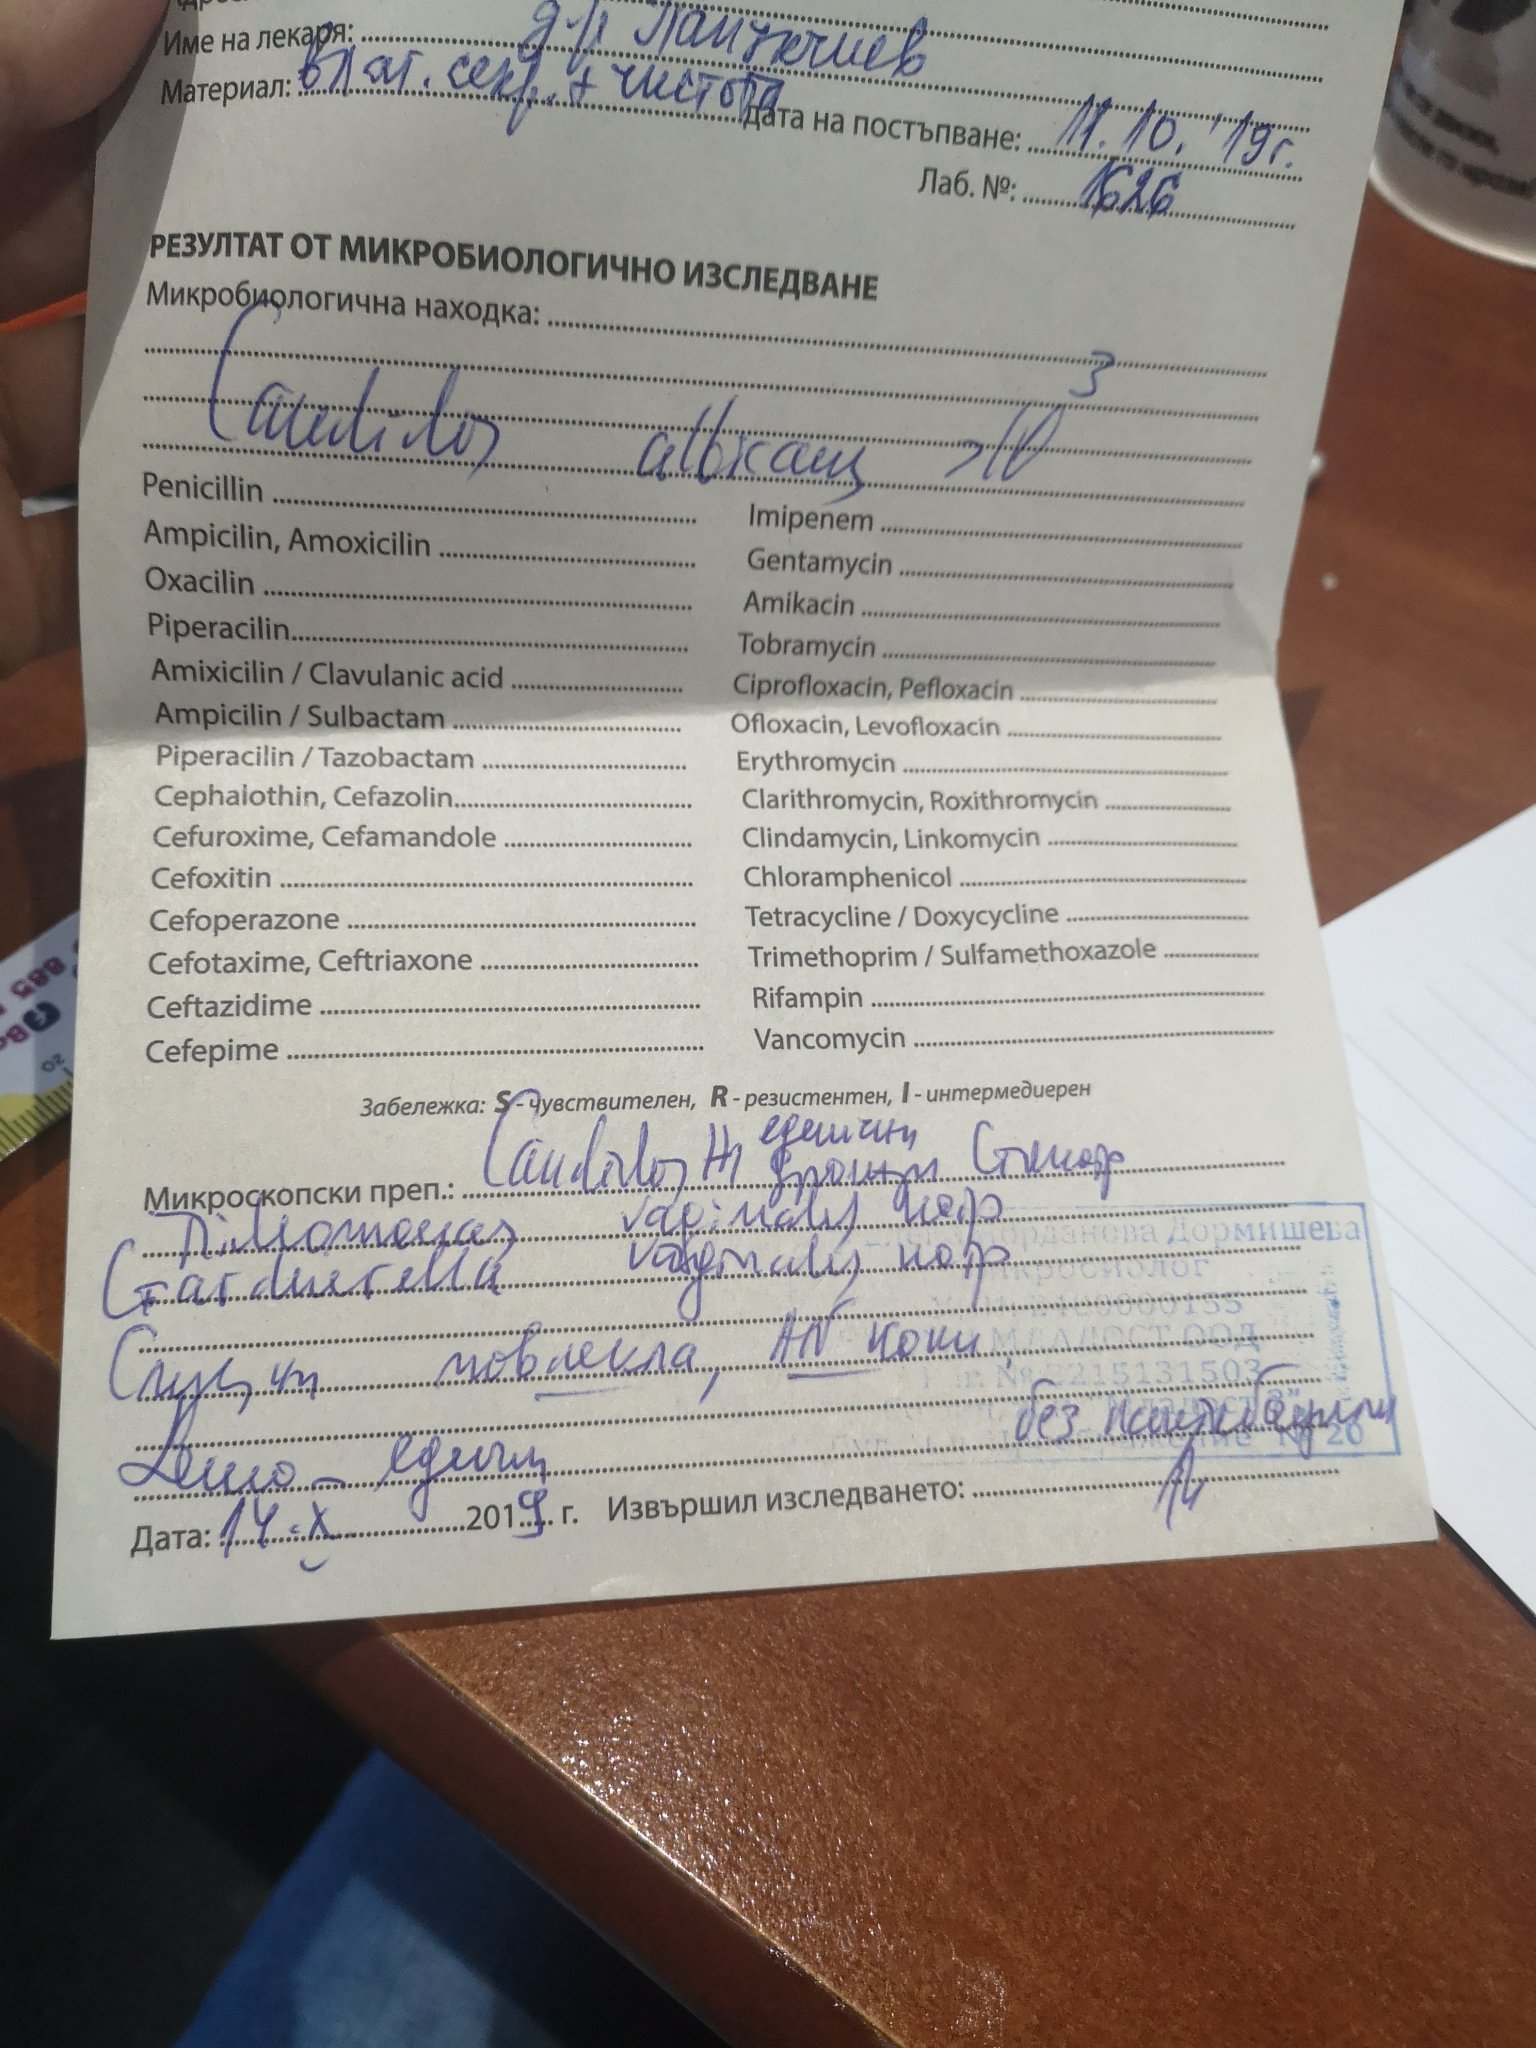 Име на лекаря: д-р Пантухчиев
Материал: влаг. секр. + чистота
Дата на постъпване: 11.10.'19г.
Лаб. №: 1626
РЕЗУЛТАТ ОТ МИКРОБИОЛОГИЧНО ИЗСЛЕДВАНЕ
Микробиологична находка:
Candida albicans >10³
Penicillin
Ampicilin, Amoxicilin
Oxacilin
Piperacilin
Amixicilin / Clavulanic acid
Ampicilin / Sulbactam
Piperacilin / Tazobactam
Cephalothin, Cefazolin
Cefuroxime, Cefamandole
Cefoxitin
Cefoperazone
Cefotaxime, Ceftriaxone
Ceftazidime
Cefepime
Imipenem
Gentamycin
Amikacin
Tobramycin
Ciprofloxacin, Pefloxacin
Ofloxacin, Levofloxacin
Erythromycin
Clarithromycin, Roxithromycin
Clindamycin, Linkomycin
Chloramphenicol
Tetracycline / Doxycycline
Trimethoprim / Sulfamethoxazole
Rifampin
Vancomycin
Забележка: S - чувствителен, R - резистентен, I - интермедиерен
Микроскопски преп.: Candida единични
vaginalis
Gardnerella vaginalis
повлекла, коки
Левко – единични без
Дата: 14.X 2019 г. Извършил изследването:
Йорданова Дормишева
микробиолог
ООД
20